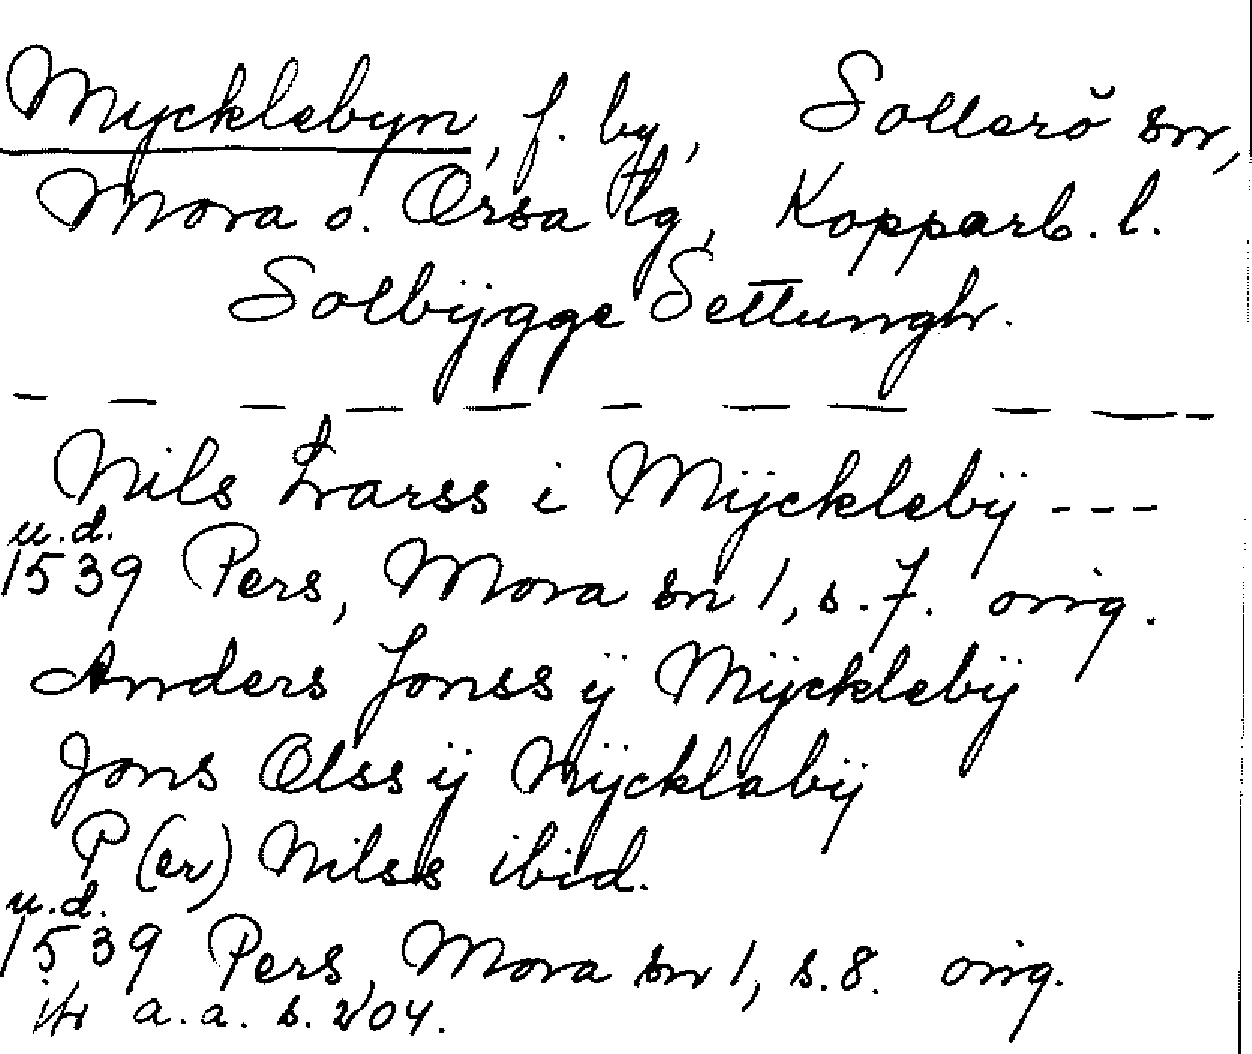 Mycklebyn, f. by, Sollerö sn,
Mora o. Orsa tlg, Kopparb. l.
Solbÿgge Settungh.
Nils Larss i Mÿcklebÿ ---
u.d.
1539 Pers, Mora sn 1, s. 7. orig.
Anders Jonss ÿ Mÿcklebÿ
Jons Olss ÿ Mÿcklabÿ
P(er) Nilss ibid.
u.d.
1539 Pers, Mora sn 1, s. 8. orig.
jfr a.a. s. 204.